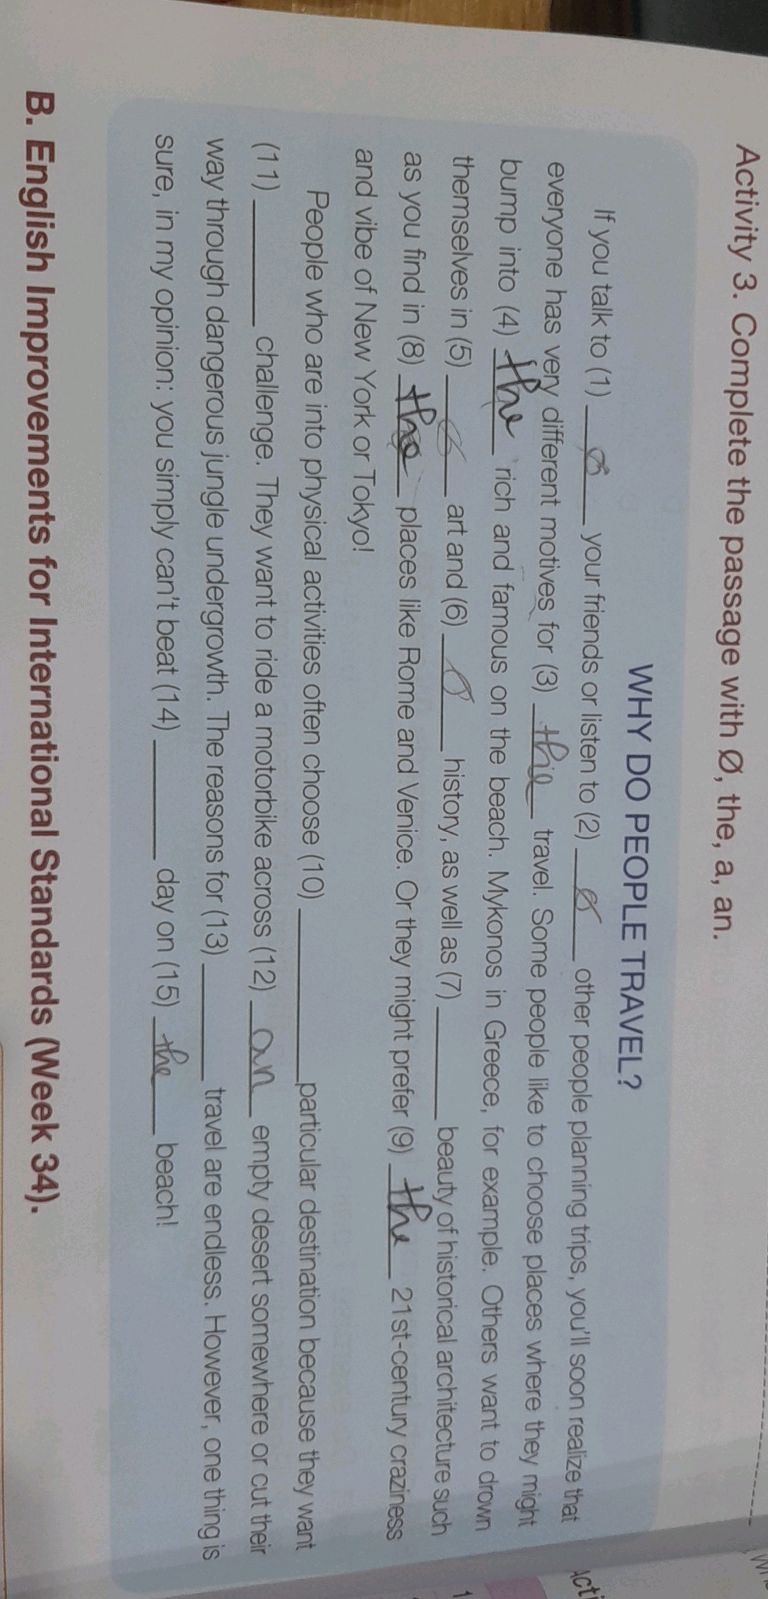 Activity 3. Complete the passage with Ø, the, a, an.
WHY DO PEOPLE TRAVEL?
If you talk to (1) Ø your friends or listen to (2) Ø other people planning trips, you'll soon realize that
everyone has very different motives for (3) the travel. Some people like to choose places where they might
bump into (4) the rich and famous on the beach. Mykonos in Greece, for example. Others want to drown
themselves in (5) Ø art and (6) Ø history, as well as (7) ______ beauty of historical architecture such
as you find in (8) the places like Rome and Venice. Or they might prefer (9) the 21st-century craziness
and vibe of New York or Tokyo!
People who are into physical activities often choose (10) ______ particular destination because they want
(11) ______ challenge. They want to ride a motorbike across (12) an empty desert somewhere or cut their
way through dangerous jungle undergrowth. The reasons for (13) ______ travel are endless. However, one thing is
sure, in my opinion: you simply can't beat (14) ______ day on (15) the beach!
B. English Improvements for International Standards (Week 34).
Acti
1